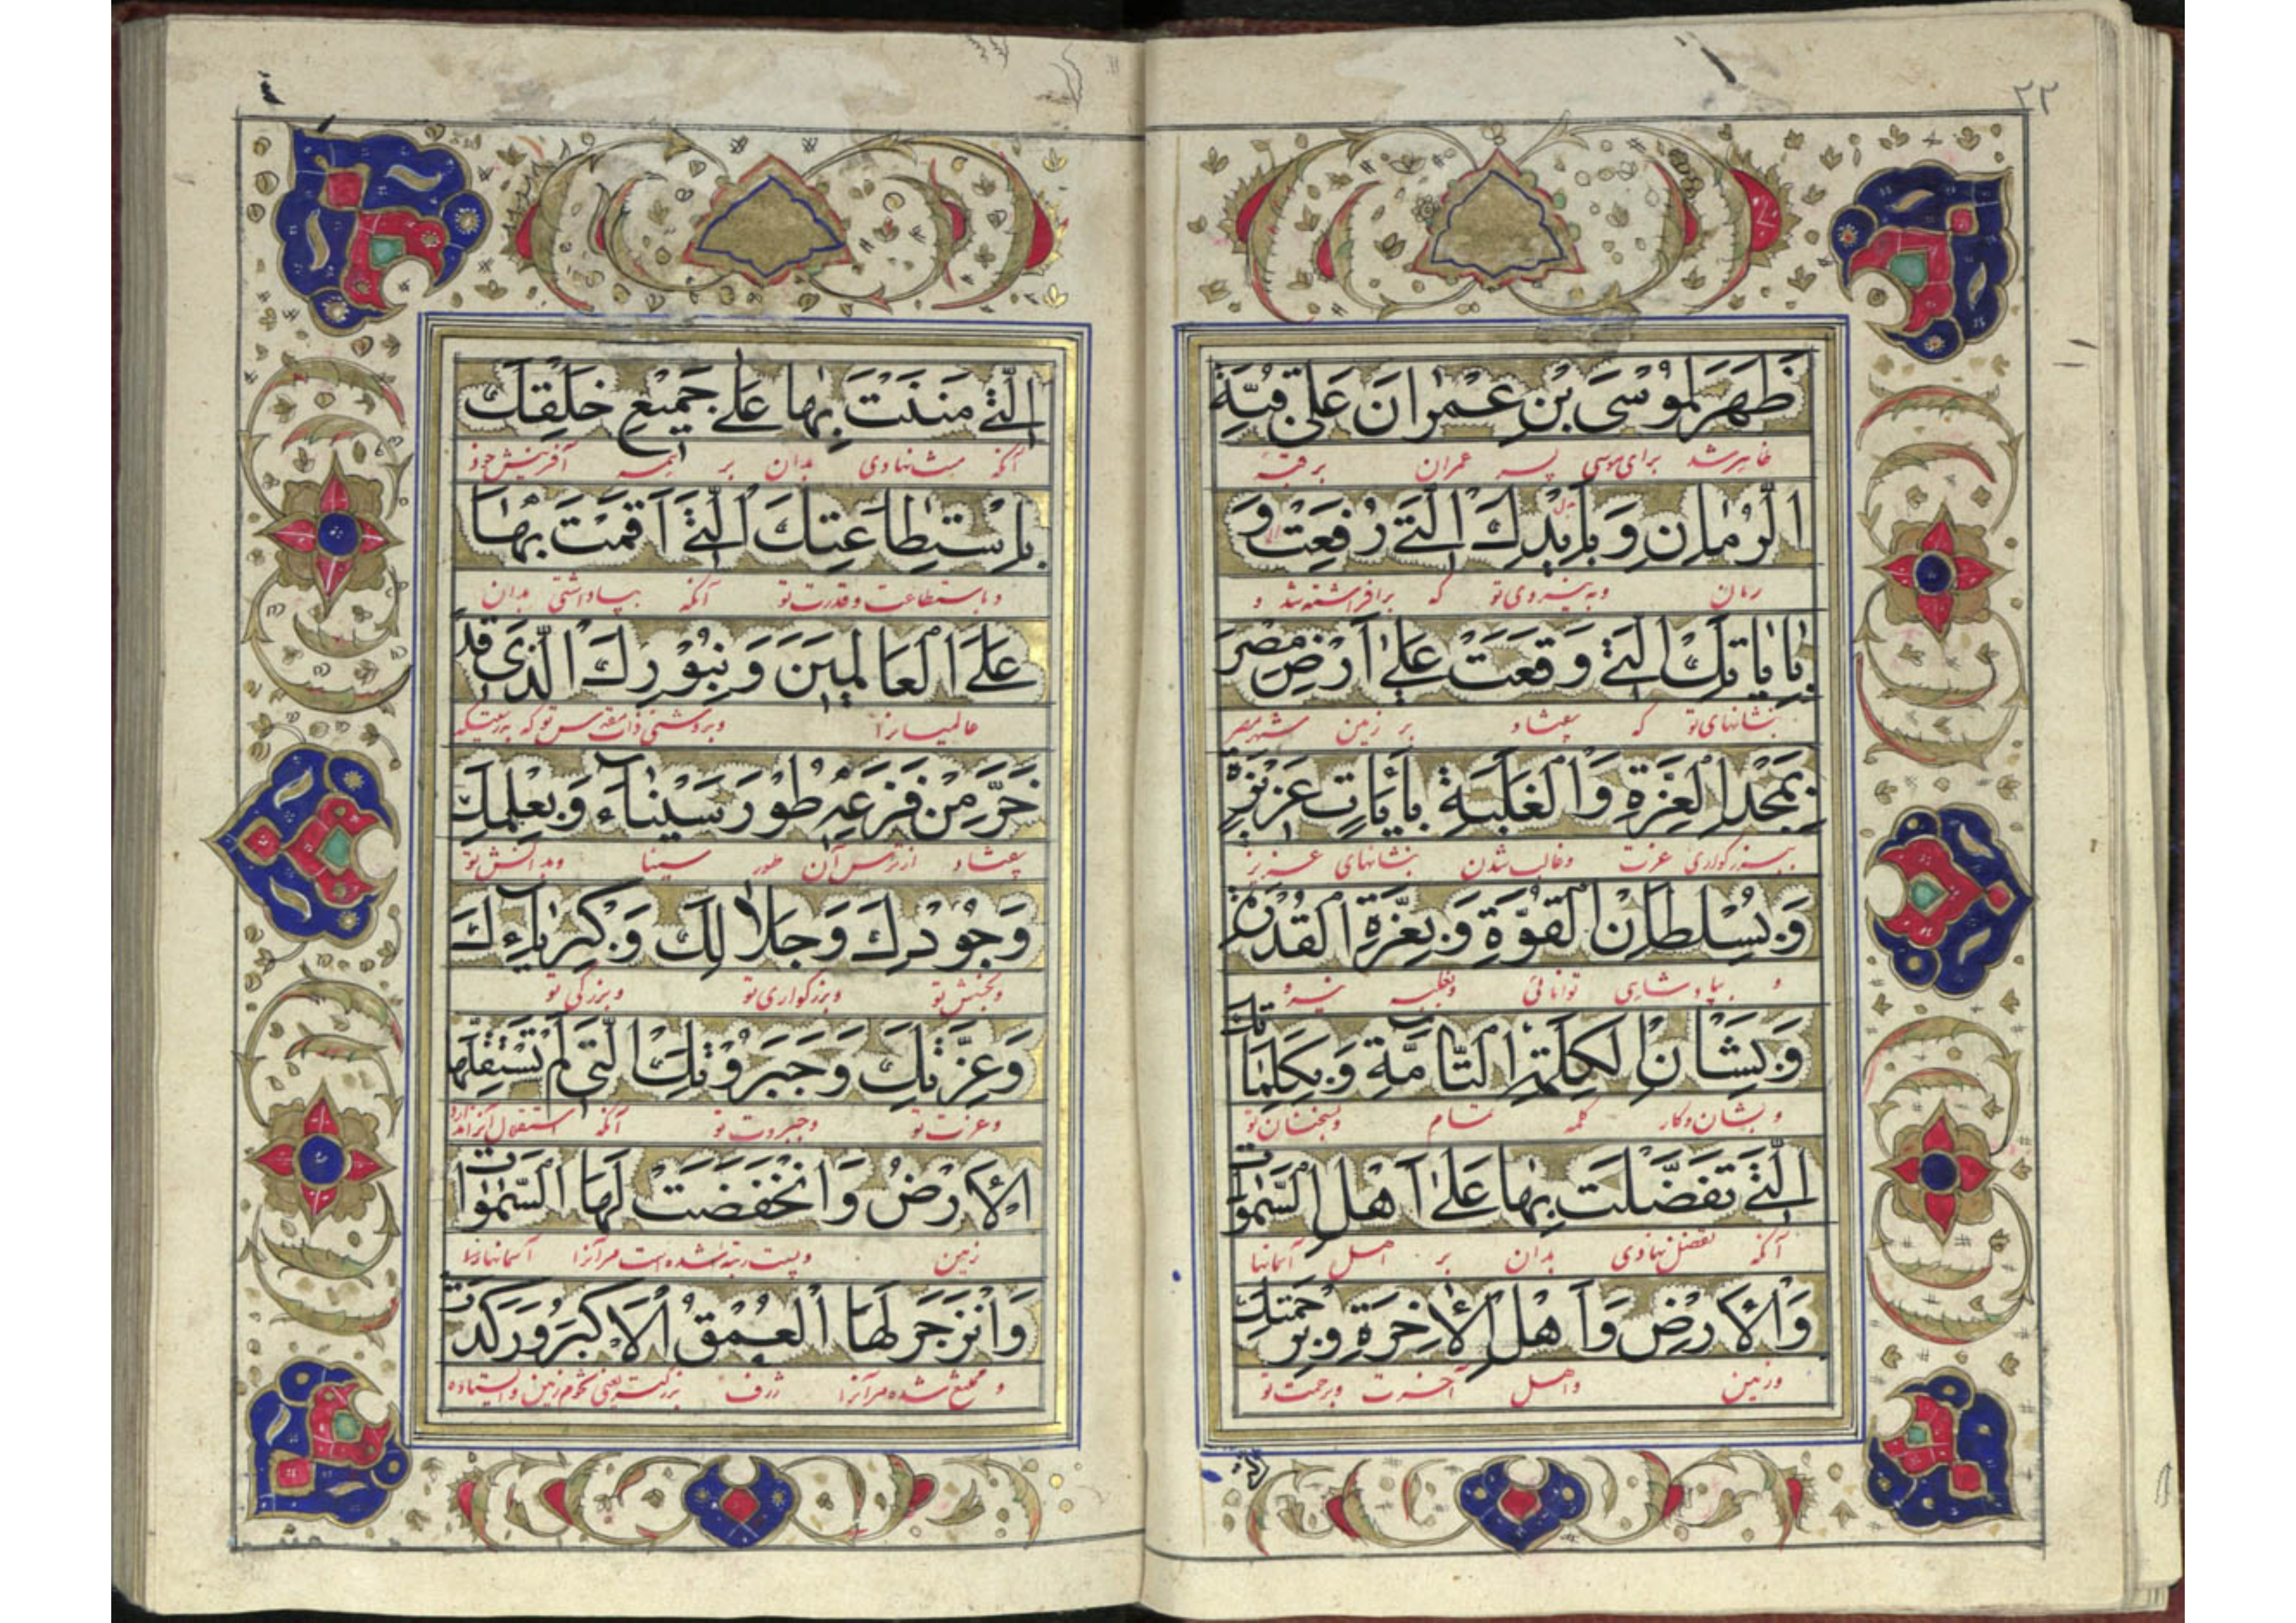 ٢٢
ظَهَرَ لِمُوْسَى بْنِ عِمْرانَ عَلى قُبَّةِ
ظاهر شد برای موسی پسر عمران بر قبه
الرُمّانِ وَ بِاَيْدِكَ الَّتى رُفِعَتْ وَ
رمان وبه نیروی تو که برافراشته شد و
بِاياتِكَ الَّتى وَقَعَتْ عَلى اَرْضِ مِصْرَ
بنشانهای تو که بیفتاد بر زمین شهر مصر
بِمَجْدِ الْعِزَّةِ وَالْغَلَبَةِ بِاياتٍ عَزيْزَةٍ
ببزرکواری عزت وغالب شدن بنشانهای عزیز
وَ بِسُلْطانِ الْقُوَّةِ وَ بِعِزَّةِ الْقُدْرَةِ
و بپادشاهی توانائی وبغلبه نیرو
وَ بِشَانِ الْكَلِمَةِ التّامَّةِ وَ بِكَلِماتِكَ
وبشان وکار کلمه تمام وبسخنان تو
الَّتى تَفَضَّلْتَ بِها عَلى اَهْلِ السَّمواتِ
آنکه تفضل نهادی بدان بر اهل آسمانها
وَالْاَرْضِ وَ اَهْلِ الْاخِرَةِ وَ بِرَحْمَتِكَ
وزمین واهل آخرت وبرحمت تو
الَّتى مَنَنْتَ بِها عَلى جَميْعِ خَلْقِكَ
آنکه منت نهادی بدان بر همه آفرینش خود
بِاِسْتِطاعَتِكَ الَّتى اَقَمْتَ بِها
وباستطاعت وقدرت تو آنکه بپاداشتی بدان
عَلَى الْعالَميْنَ وَ بِنُوْرِكَ الَّذى قَدْ
عالمیانرا وبروشنی ذات مقدس تو که بدرستیکه
خَرَّ مِنْ فَزَعِهِ طُوْرُ سَيْناءَ وَ بِعِلْمِكَ
بیفتاد از ترس آن طور سینا وبدانش تو
وَ جُوْدِكَ وَ جَلالِكَ وَ كِبْرِيائِكَ
وبخشش تو وبزرکواری تو وبزرگی تو
وَ عِزَّتِكَ وَ جَبَرُوْتِكَ الَّتى لَمْ تَسْتَقِلَّهَا
وعزت تو وجبروت تو آنکه استقلال آنرا ندارد
الْاَرْضُ وَ انْخَفَضَتْ لَهَا السَّمواتُ
زمین وپست رتبه شده است مرآنرا آسمانها
وَ انْزَجَرَ لَهَا الْعُمْقُ الْاَكْبَرُ وَ رَكَدَتْ
شده مرآنرا ژرف بزرگتر یعنی زمین وایستاده